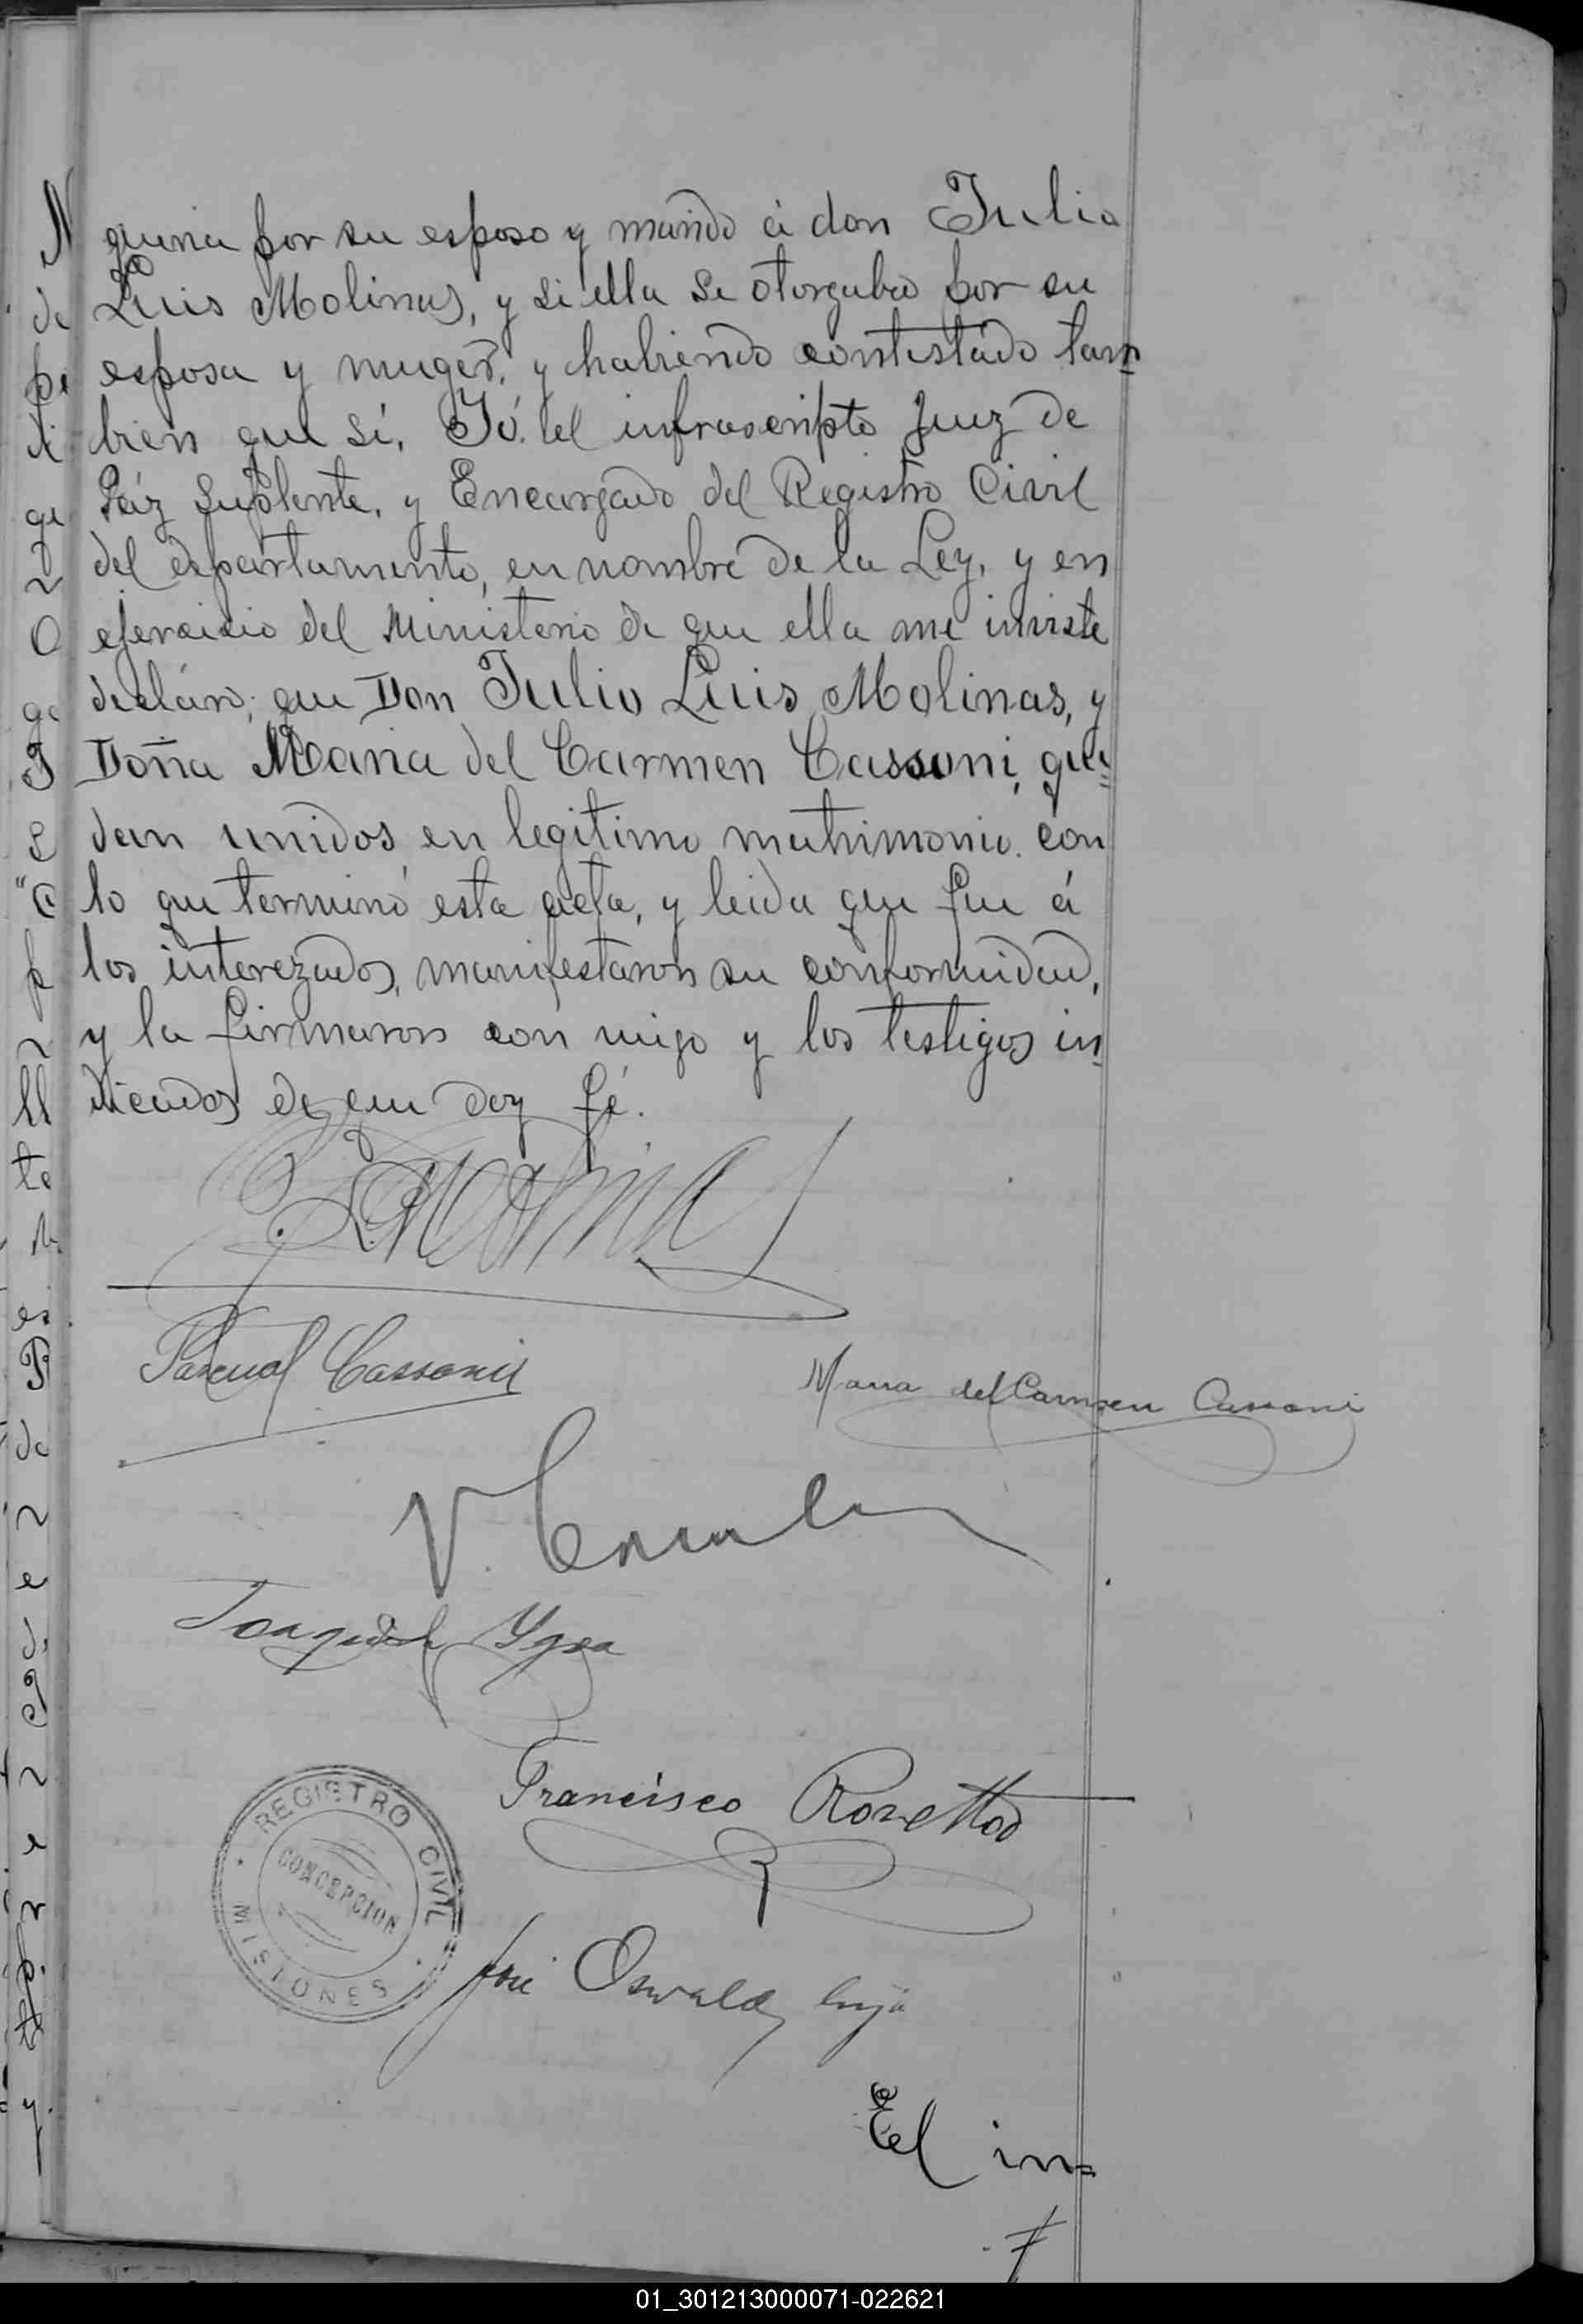 queria por su esposo y marido á don Julio
Luis Molinas, y si ella se otorgaba por su
esposa y muger, y habiendo contestado tam=
bien que sí, Yó el infrascripto Juez de
Páz Suplente, y Encargado del Registro Civil
del departamento, en nombre de la Ley, y en
ejercicio del Ministerio de que ella me inviste
declaro; que Don Julio Luis Molinas, y
Doña Maria del Carmen Cassoni, que=
dan unidos en legitimo matrimonio. con
lo que terminó esta acta, y leida que fue á
los interezados, manifestaron su conformidad,
y la firmaron con migo y los testigos in=
dicados de que doy fé.
Pascual Cassoni
Maria del Carmen Cassoni
Francisco
José Oswald
REGISTRO CIVIL
CONCEPCION
MISIONES
El in=
01_301213000071-022621